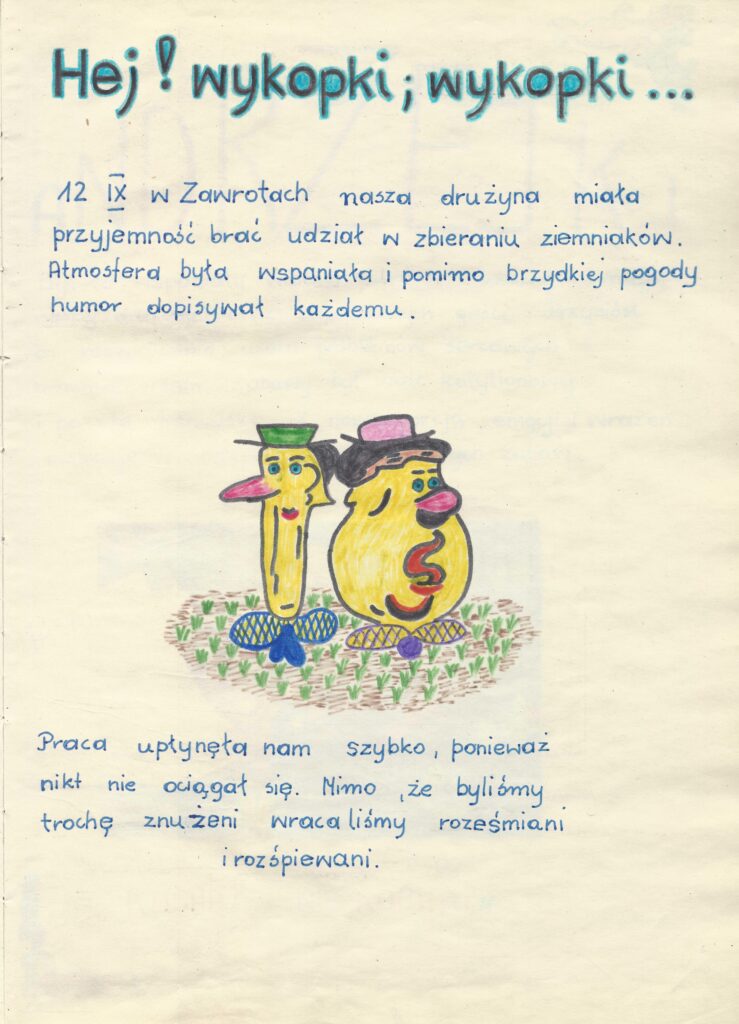 Hej! wykopki; wykopki...
12 IX w Zawrotach nasza drużyna miała
przyjemność brać udział w zbieraniu ziemniaków.
Atmosfera była wspaniała i pomimo brzydkiej pogody
humor dopisywał każdemu.
Praca upłynęła nam szybko, ponieważ
nikt nie ociągał się. Mimo, że byliśmy
trochę znużeni wracaliśmy roześmiani
i rozśpiewani.